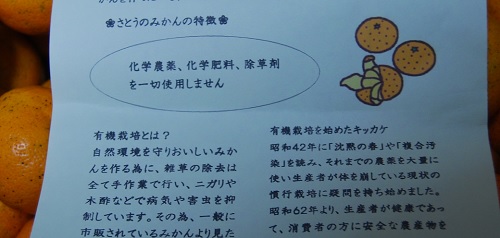 ❀さとうのみかんの特徴❀
化学農薬、化学肥料、除草剤
を一切使用しません
有機栽培とは？
自然環境を守りおいしいみか
んを作る為に、雑草の除去は
全て手作業で行い、ニガリや
木酢などで病気や害虫を抑
制しています。その為、一般に
市販されているみかんより見た
有機栽培を始めたキッカケ
昭和42年に「沈黙の春」や「複合汚
染」を読み、それまでの農薬を大量に
使い生産者が体を崩している現状の
慣行栽培に疑問を持ち始めました。
昭和62年より、生産者が健康であっ
て、消費者の方に安全な農産物を